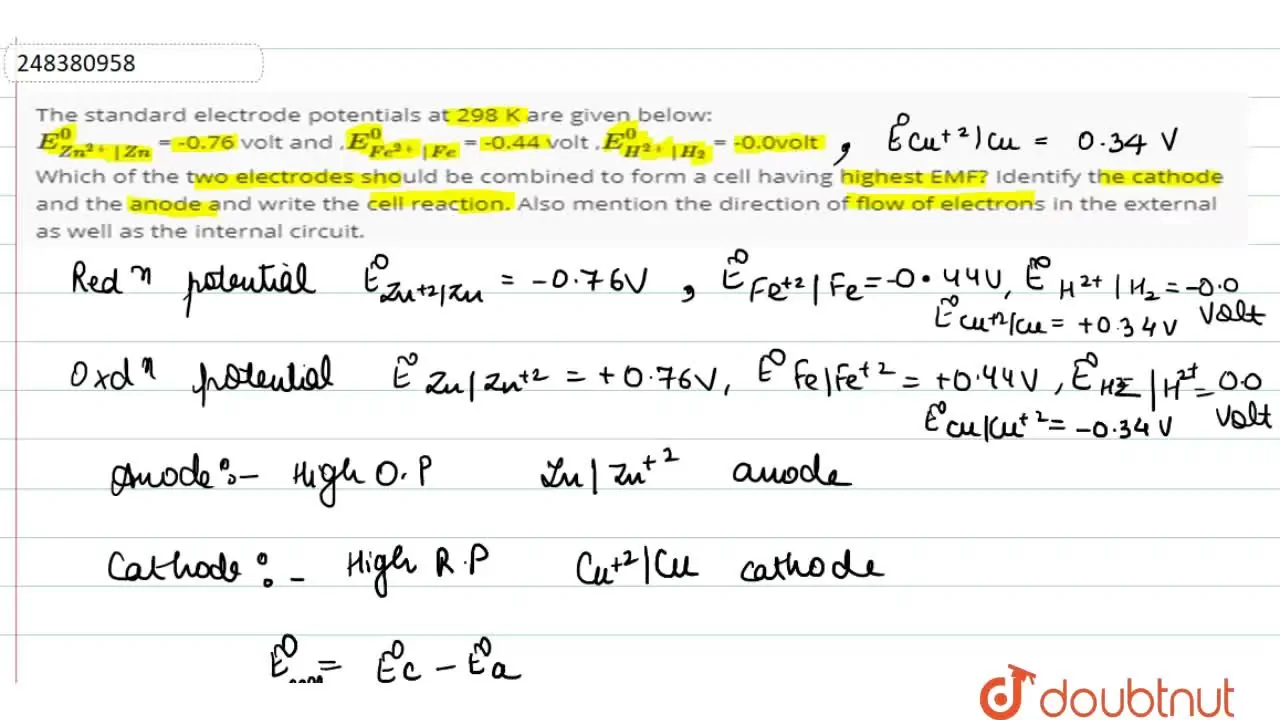 248380958
The standard electrode potentials at 298 K are given below:
E⁰Zn²⁺|Zn = -0.76 volt and ,E⁰Fe²⁺|Fe = -0.44 volt ,E⁰H²⁺|H₂ = -0.0volt , E⁰Cu⁺²|Cu = 0.34 V
Which of the two electrodes should be combined to form a cell having highest EMF? Identify the cathode
and the anode and write the cell reaction. Also mention the direction of flow of electrons in the external
as well as the internal circuit.
Redⁿ potential E⁰Zn⁺²|Zn = -0.76V , E⁰Fe⁺²|Fe = -0.44V, E⁰H²⁺|H₂ = -0.0 Volt
E⁰Cu⁺²|Cu = +0.34V
Oxdⁿ potential E⁰Zn|Zn⁺² = +0.76V, E⁰Fe|Fe⁺² = +0.44V, E⁰H2|H²⁺ = 0.0 Volt
E⁰Cu|Cu⁺² = -0.34V
Anode :- High O.P Zn|Zn⁺² anode
Cathode :- High R.P Cu⁺²|Cu cathode
E⁰ = E⁰c - E⁰a
doubtnut